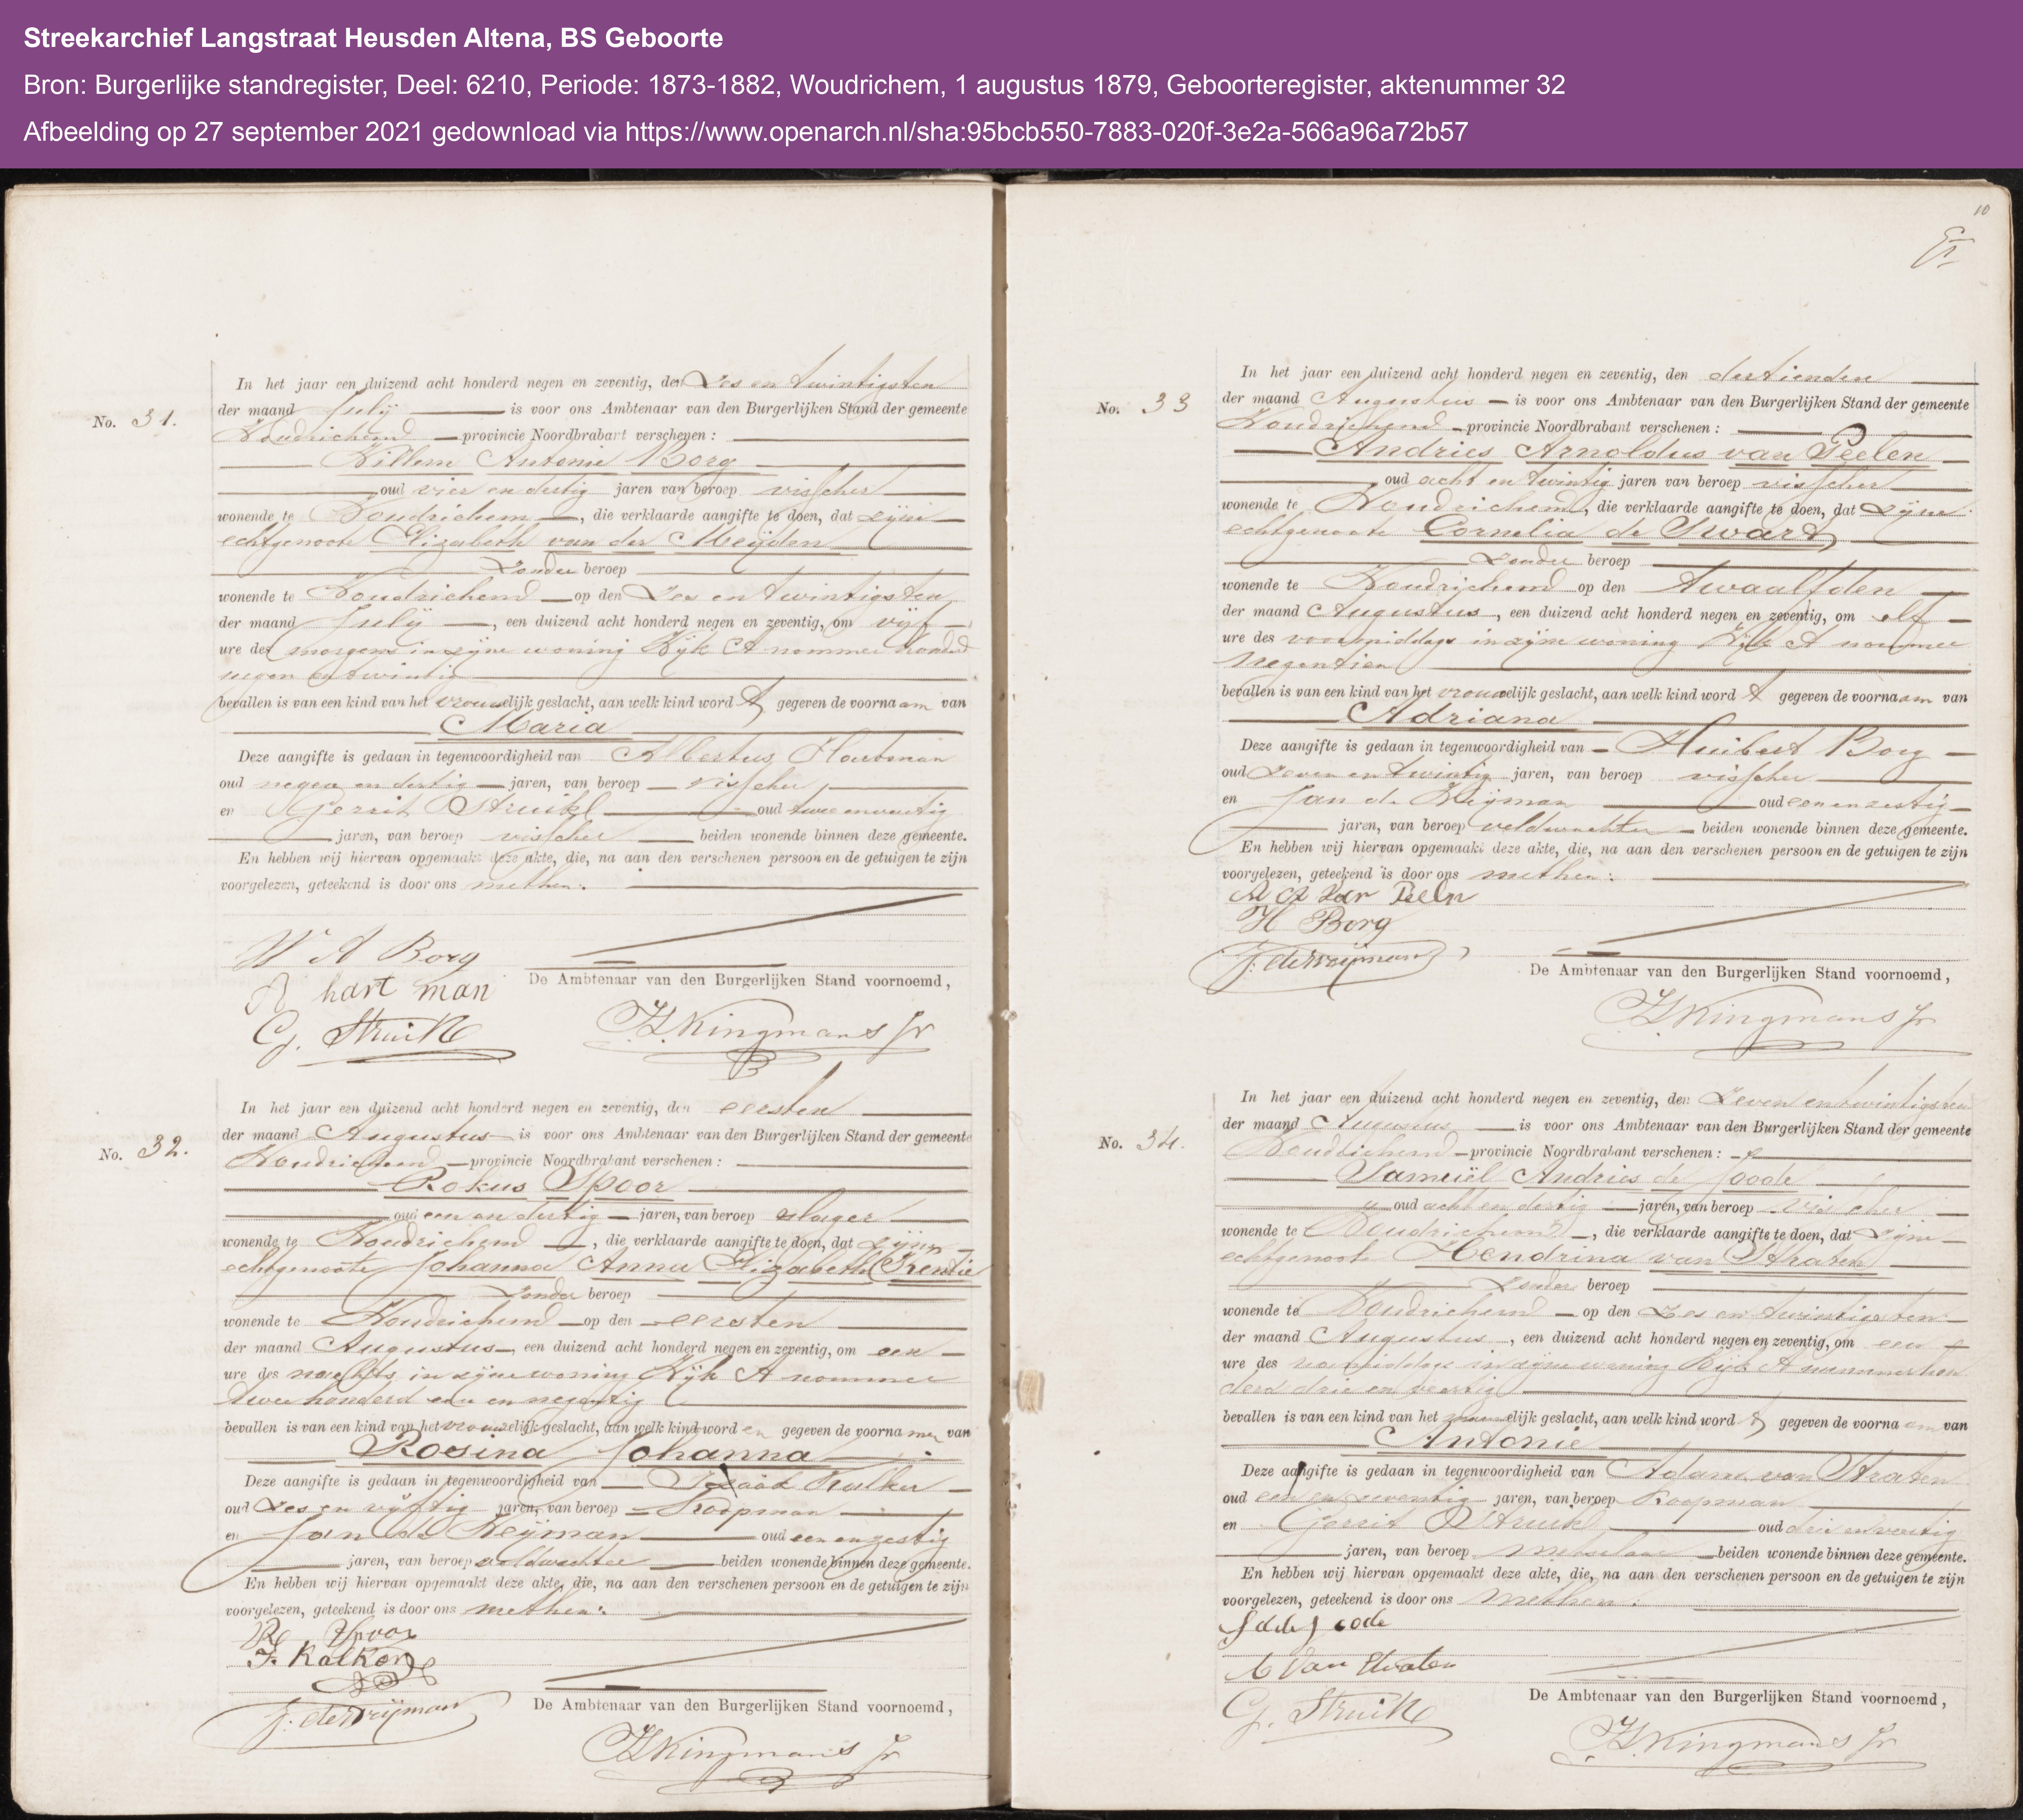 Streekarchief Langstraat Heusden Altena, BS Geboorte
Bron: Burgerlijke standregister, Deel: 6210, Periode: 1873-1882, Woudrichem, 1 augustus 1879, Geboorteregister, aktenummer 32
Afbeelding op 27 september 2021 gedownload via https://www.openarch.nl/sha:95bcb550-7883-020f-3e2a-566a96a72b57
No. 31.
In het jaar een duizend acht honderd negen en zeventig, den Zes en twintigsten
der maand July is voor ons Ambtenaar van den Burgerlijken Stand der gemeente
Woudrichem provincie Noordbrabant verschenen :
Willem Antonie Borg
oud vier en dertig jaren van beroep visscher
wonende te Woudrichem, die verklaarde aangifte te doen, dat zijne
echtgenoote Elizabeth van der Meijden
Zonder beroep
wonende te Woudrichem op den Zes en twintigsten
der maand July, een duizend acht honderd negen en zeventig, om vijf
ure des morgens in zijne woning Wijk A nommer honderd
negen en twintig
bevallen is van een kind van het vrouwelijk geslacht, aan welk kind word t gegeven de voornaam van
Maria
Deze aangifte is gedaan in tegenwoordigheid van Albertus Hartman
oud negen en dertig jaren, van beroep visscher
en Gerrit Struik oud twee en veertig
jaren, van beroep visscher beiden wonende binnen deze gemeente.
En hebben wij hiervan opgemaakt deze akte, die, na aan den verschenen persoon en de getuigen te zijn
voorgelezen, geteekend is door ons met hen.
W A Borg
A hart man
G. Struik
De Ambtenaar van den Burgerlijken Stand voornoemd,
Kingmans Jr
No. 32.
In het jaar een duizend acht honderd negen en zeventig, den eersten
der maand Augustus is voor ons Ambtenaar van den Burgerlijken Stand der gemeente
Woudrichem provincie Noordbrabant verschenen :
Rokus Spoor
oud een en dertig jaren, van beroep slager
wonende te Woudrichem, die verklaarde aangifte te doen, dat zijne
echtgenoote Johanna Anna Elizabeth
Zonder beroep
wonende te Woudrichem op den eersten
der maand Augustus, een duizend acht honderd negen en zeventig, om een
ure des nachts in zijne woning Wijk A nommer
twee honderd een en negentig
bevallen is van een kind van het vrouwelijk geslacht, aan welk kind word en gegeven de voornamen van
Rosina Johanna
Deze aangifte is gedaan in tegenwoordigheid van Izaak Kalker
oud Zes en vijftig jaren, van beroep Koopman
en Jan de Weijman oud een en zestig
jaren, van beroep veldwachter beiden wonende binnen deze gemeente.
En hebben wij hiervan opgemaakt deze akte, die, na aan den verschenen persoon en de getuigen te zijn
voorgelezen, geteekend is door ons met hen.
R Spoor
I. Kalker
J. de Weijman
De Ambtenaar van den Burgerlijken Stand voornoemd,
Kingmans Jr
10
No. 33
In het jaar een duizend acht honderd negen en zeventig, den dertienden
der maand Augustus is voor ons Ambtenaar van den Burgerlijken Stand der gemeente
Woudrichem provincie Noordbrabant verschenen :
Andries Arnoldus van Peelen
oud acht en twintig jaren van beroep visscher
wonende te Woudrichem, die verklaarde aangifte te doen, dat zijne
echtgenoote Cornelia de Swart
Zonder beroep
wonende te Woudrichem op den twaalfden
der maand Augustus, een duizend acht honderd negen en zeventig, om elf
ure des voormiddags in zijne woning Wijk A nommer
negentien
bevallen is van een kind van het vrouwelijk geslacht, aan welk kind word t gegeven de voornaam van
Adriana
Deze aangifte is gedaan in tegenwoordigheid van Huibert Borg
oud Zeven en twintig jaren, van beroep visscher
en Jan de Weijman oud een en zestig
jaren, van beroep veldwachter beiden wonende binnen deze gemeente.
En hebben wij hiervan opgemaakt deze akte, die, na aan den verschenen persoon en de getuigen te zijn
voorgelezen, geteekend is door ons met hen.
A A van Peeln
H Borg
J. de Weijman
De Ambtenaar van den Burgerlijken Stand voornoemd,
Kingmans Jr
No. 34.
In het jaar een duizend acht honderd negen en zeventig, den Zeven en twintigsten
der maand Augustus is voor ons Ambtenaar van den Burgerlijken Stand der gemeente
Woudrichem provincie Noordbrabant verschenen :
Samuël Andries de Joode
oud acht en dertig jaren, van beroep visscher
wonende te Woudrichem, die verklaarde aangifte te doen, dat zijne
echtgenoote Hendrina van Straten
Zonder beroep
wonende te Woudrichem op den Zes en twintigsten
der maand Augustus, een duizend acht honderd negen en zeventig, om een
ure des namiddags in zijne woning Wijk A nommer hon
derd drie en veertig
bevallen is van een kind van het mannelijk geslacht, aan welk kind word t gegeven de voornaam van
Antonie
Deze aangifte is gedaan in tegenwoordigheid van Adam van Straten
oud een en zeventig jaren, van beroep Koopman
en Gerrit Struik oud drie en veertig
jaren, van beroep metselaar beiden wonende binnen deze gemeente.
En hebben wij hiervan opgemaakt deze akte, die, na aan den verschenen persoon en de getuigen te zijn
voorgelezen, geteekend is door ons met hen.
S a de Joode
A van Straten
G. Struik
De Ambtenaar van den Burgerlijken Stand voornoemd,
Kingmans Jr